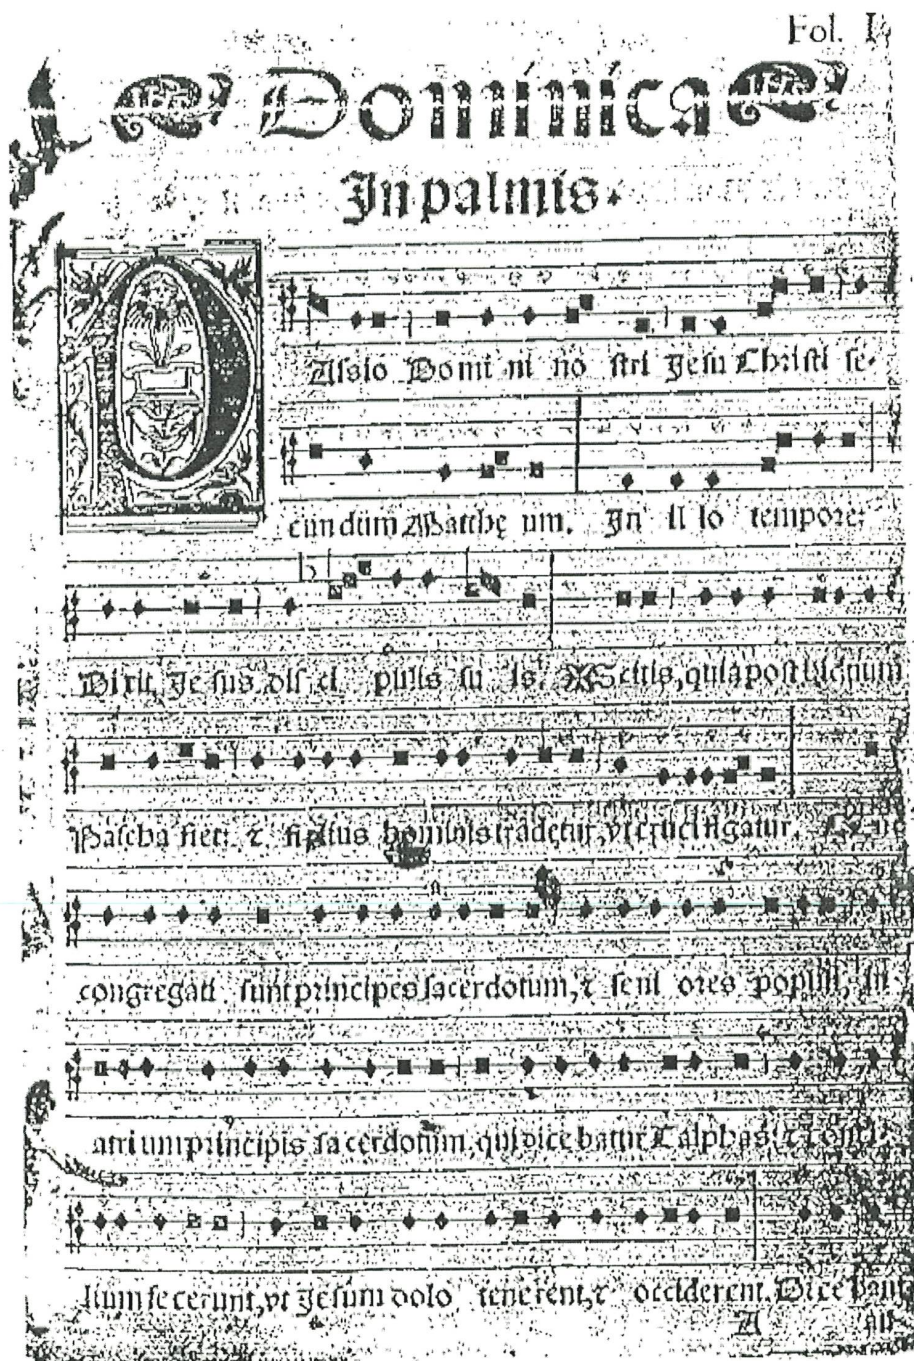 Fol. I.
Dominica
In palmis.
PAssio Domi ni no stri Jesu Christi se-
cun dum Matthę um. In il lo tempore:
Dixit Je sus dis ci pulis su is. Scitis, quia post biduum
Pascha fiet: ⁊ filius hominis tradetur, vt crucifigatur.
congregati sunt principes sacerdotum, ⁊ seni ores populi, in
atri um principis sa cerdotum, qui dice batur Caiphas: ⁊ consi-
lium fe cerunt, vt Jesum dolo tenerent, ⁊ occiderent. Dice bant
A au-